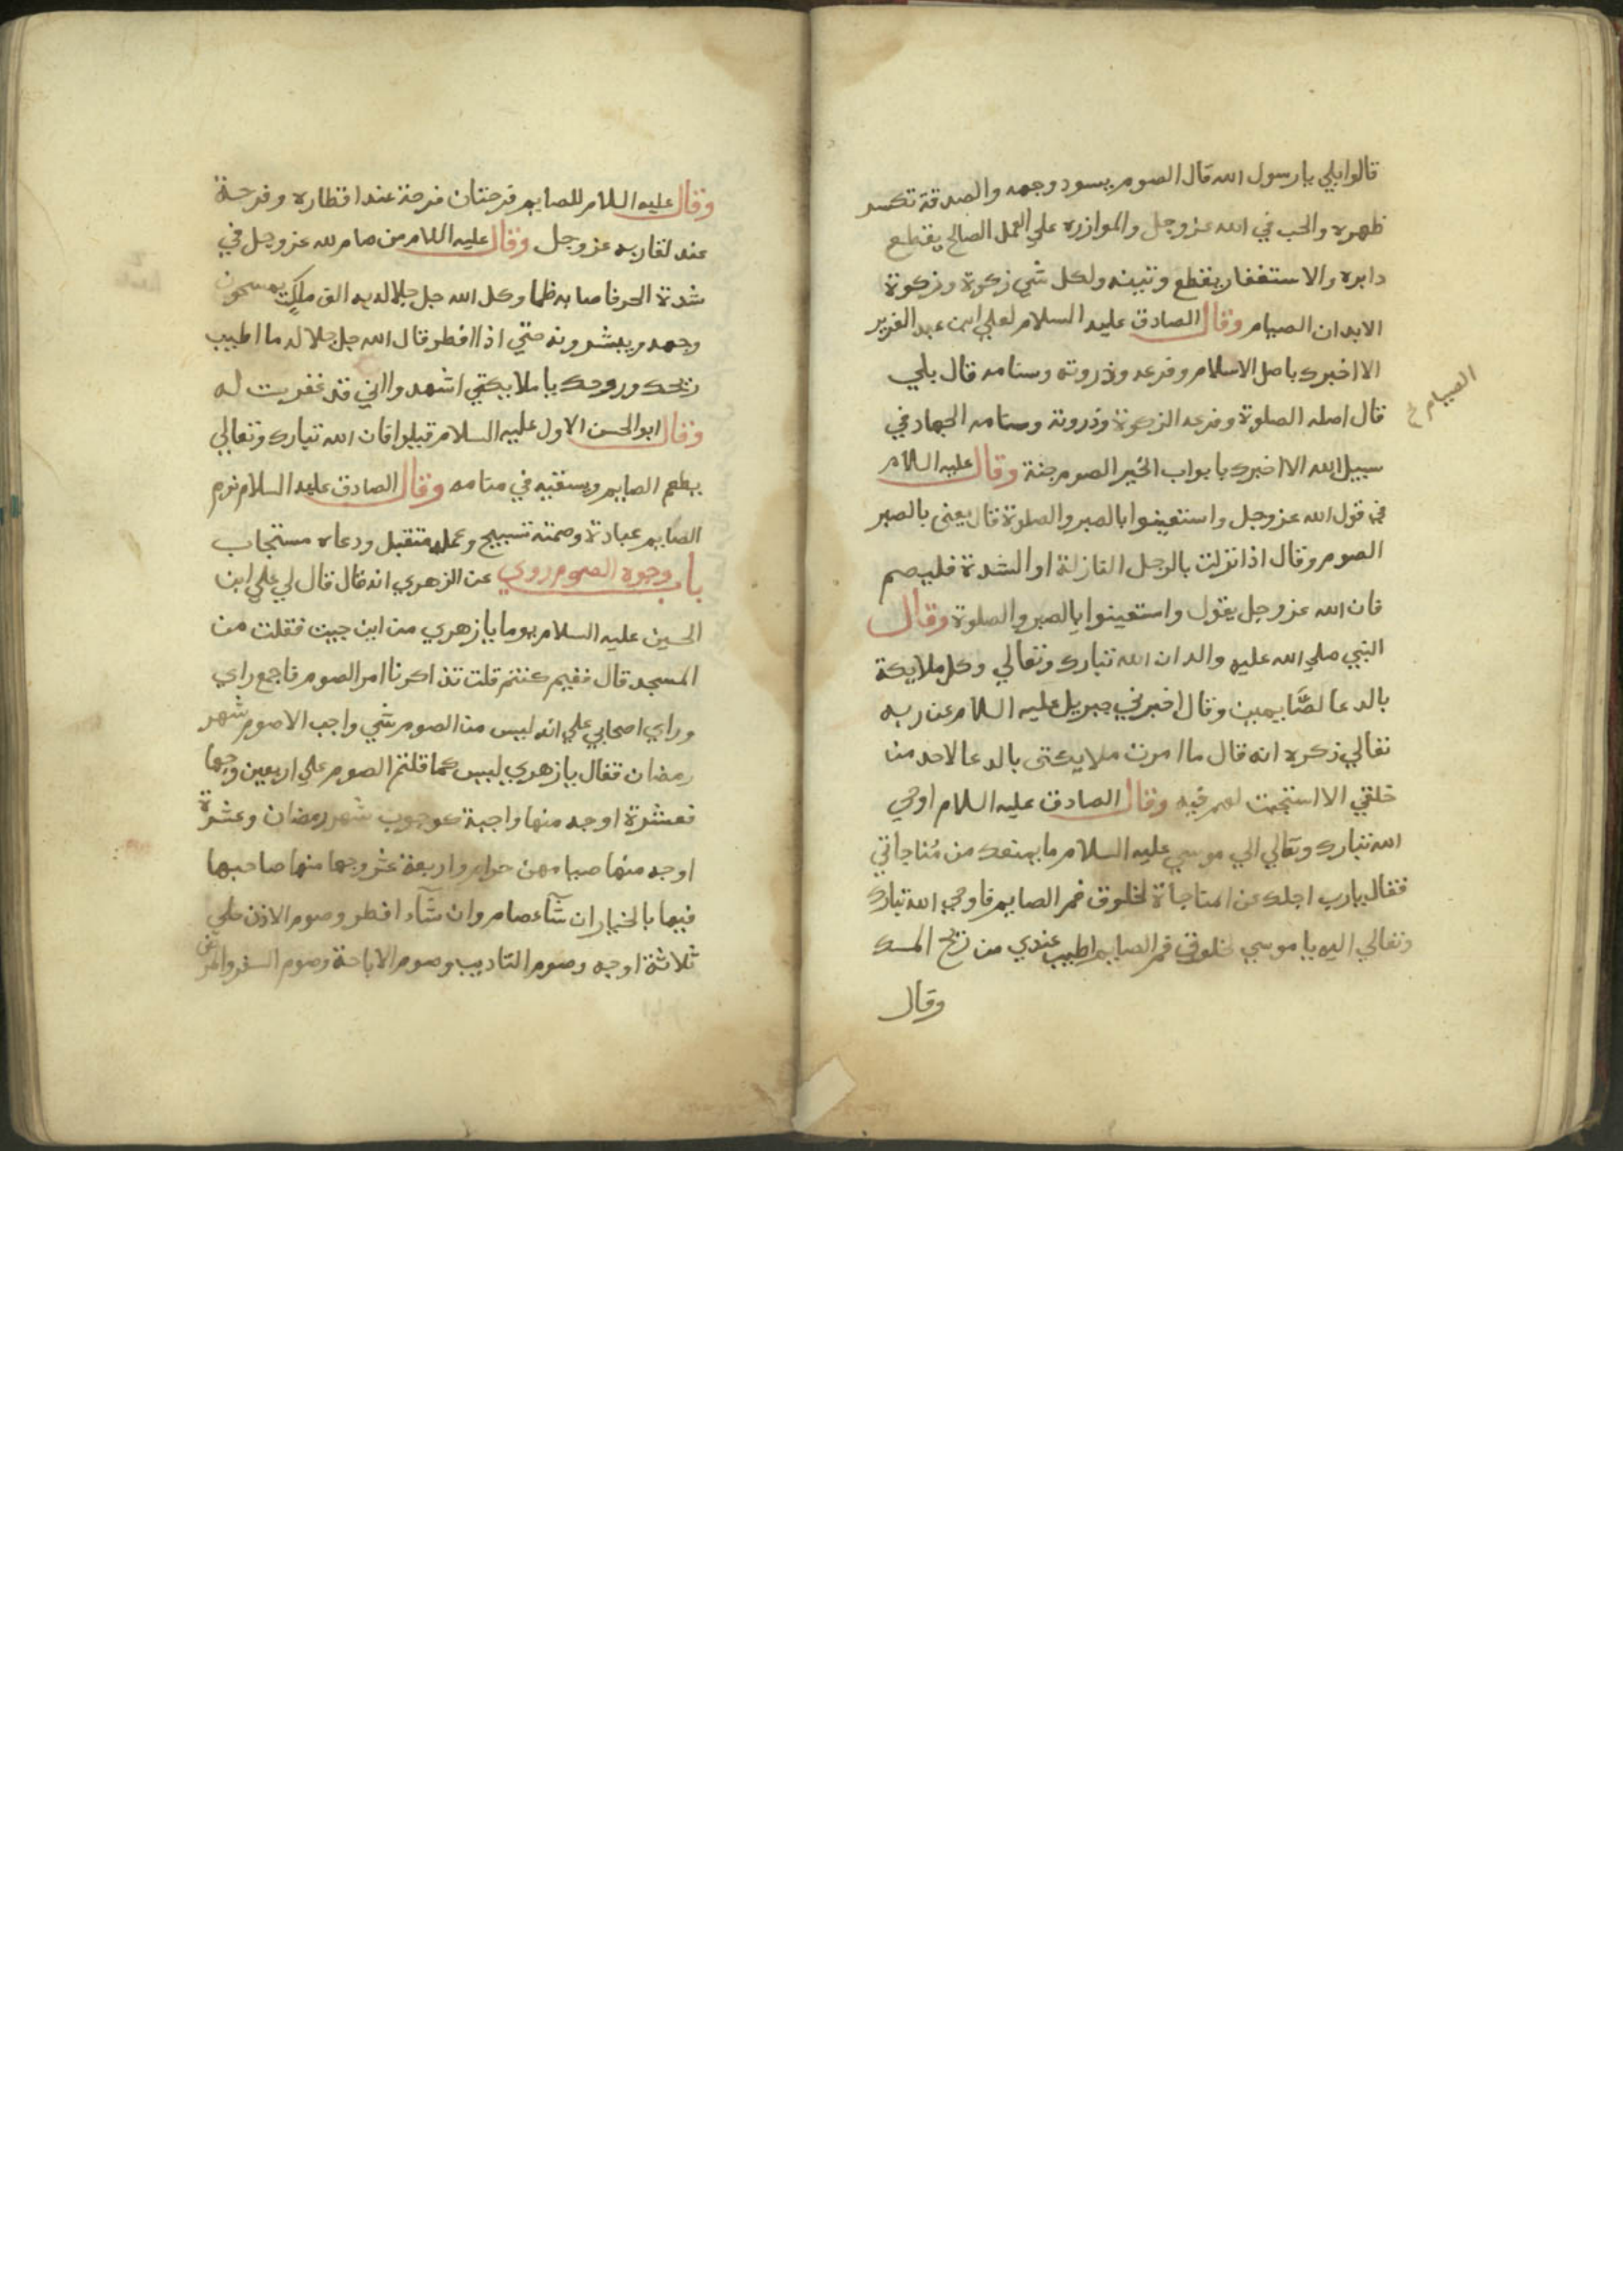 قالوا بلي يا رسول الله قال الصوم يسود وجهه والصدقة تكسر
ظهره والحب في الله عز وجل والموازره علي العمل الصالح يقطع
دابره والاستغفار يقطع وتينه ولكل شي زكوة وزكوة
الابدان الصيام وقال الصادق عليه السلام لعلي ابن عبد العزيز
الا اخبرك باصل الاسلام وفرعه وذروته وسنامه قال بلي
قال اصله الصلوة وفرعه الزكوة وذروته وسنامه الجهاد في
سبيل الله الا اخبرك بابواب الخير الصوم جنة وقال عليه السلام
في قول الله عز وجل واستعينوا بالصبر والصلوة قال يعني بالصبر
الصوم وقال اذا نزلت بالرجل النازلة او الشدة فليصم
فان الله عز وجل يقول واستعينوا بالصبر والصلوة وقال
النبي صلي الله عليه واله ان الله تبارك وتعالي وكل ملايكة
بالدعا للصّايمين وقال اخبرني جبريل عليه السلام عن ربه
تعالي ذكره انه قال ما امرت ملايكتي بالدعا لاحد من
خلقي الا استجبت لهم فيه وقال الصادق عليه السلام اوحي
الله تبارك وتعالي الي موسي عليه السلام ما يمنعك من مُناجاتي
فقال يارب اجلك عن المناجاة لخلوق فم الصايم فاوحي الله تبارك
وتعالي اليه يا موسي لخلوق فم الصايم اطيب عندي من ريح المسك
وقال
الصيام خ
وقال عليه السلام للصايم فرحتان فرحة عند افطاره وفرحة
عند لقا ربه عز وجل وقال عليه السلام من صام لله عز وجل في
شدة الحر فاصابه ظما وكل الله جل جلاله به الف ملك يمسحون
وجهه ويبشرونه حتي اذا افطر قال الله جل جلاله ما اطيب
ريحك وروحك يا ملايكتي اشهدوا اني قد غفرت له
وقال ابو الحسن الاول عليه السلام قيلوا فان الله تبارك وتعالي
يطعم الصايم ويسقيه في منامه وقال الصادق عليه السلام نوم
الصايم عبادة وصمته تسبيح وعمله متقبل ودعاه مستجاب
باب وجوه الصوم روي عن الزهري انه قال قال لي علي ابن
الحسين عليه السلام يوما يا زهري من اين جيت فقلت من
المسجد قال ففيم كنتم قلت تذاكرنا امر الصوم فاجمع راي
وراي اصحابي علي انه ليس من الصوم شي واجب الا صوم شهر
رمضان فقال يا زهري ليس كما قلتم الصوم علي اربعين وجها
فعشرة اوجه منها واجبة كوجوب شهر رمضان وعشرة
اوجه منها صيامهن حرام واربعة عشر وجها منها صاحبها
فيها بالخيار ان شآء صام وان شآء افطر وصوم الاذن علي
ثلاثة اوجه وصوم التاديب وصوم الاباحة وصوم السفر والمرض